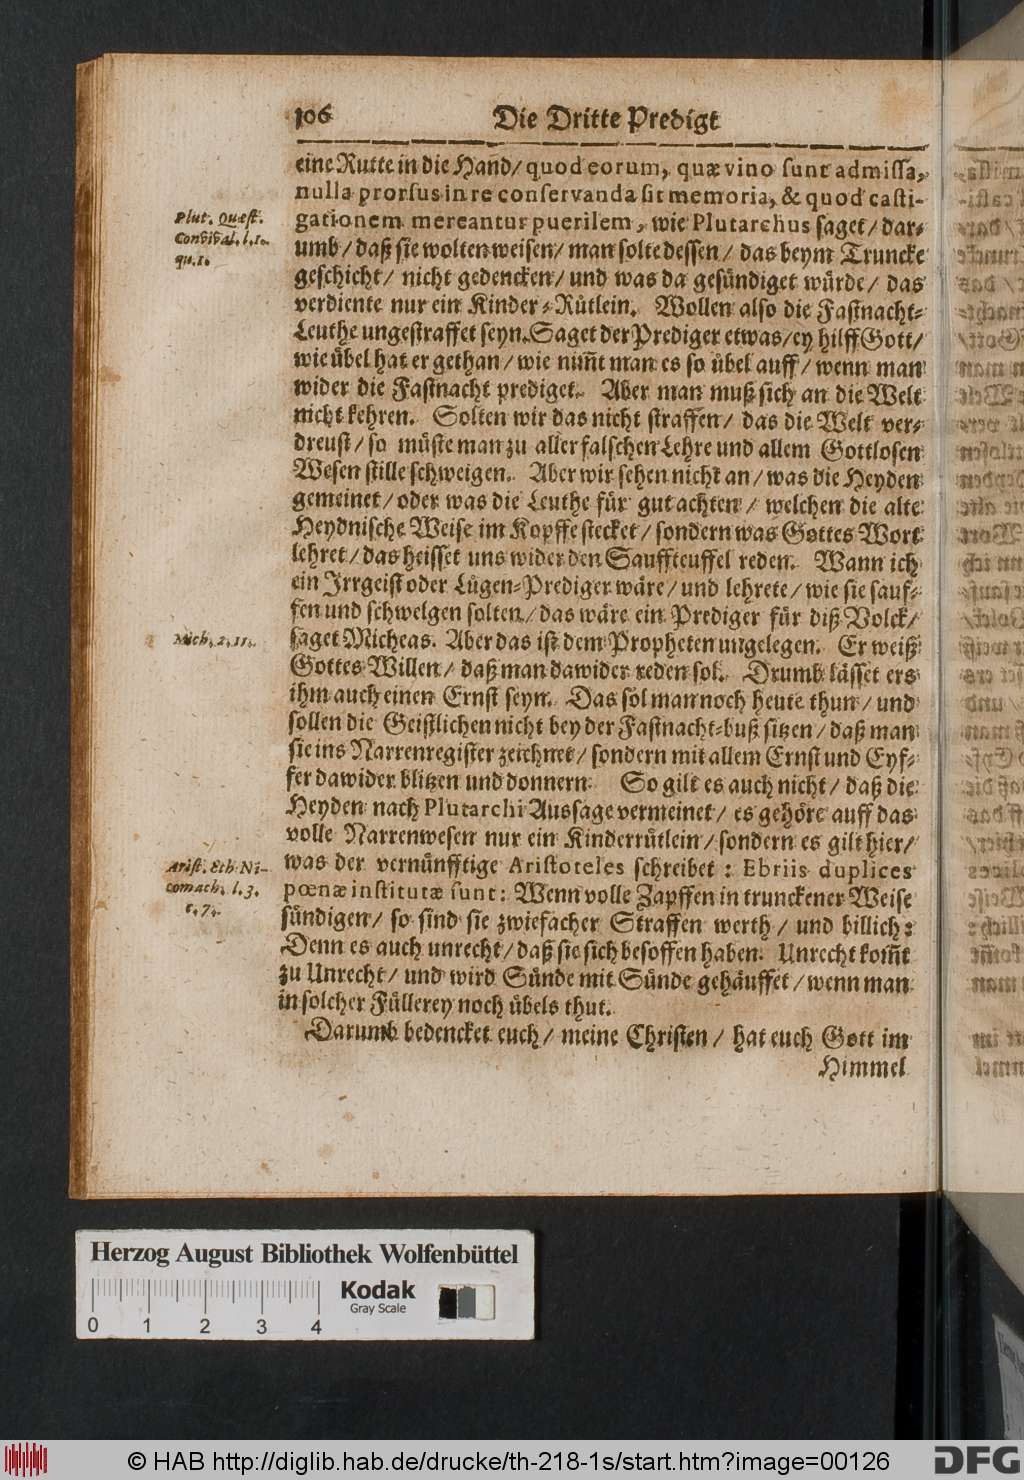 106 Die Dritte Predigt
eine Rutte in die Hand/ quod eorum, quæ vino sunt admissa,
nulla prorsus in re conservanda sit memoria, & quod casti-
gationem mereantur puerilem, wie Plutarchus saget/ dar-
umb/ daß sie wolten weisen/ man solte dessen/ das beym Truncke
geschicht/ nicht gedencken/ und was da gesündiget würde/ das
verdiente nur ein Kinder-Rütlein. Wollen also die Fastnacht-
Leuthe ungestraffet seyn. Saget der Prediger etwas/ ey hilff Gott/
wie übel hat er gethan/ wie nim̃t man es so übel auff/ wenn man
wider die Fastnacht prediget. Aber man muß sich an die Welt
nicht kehren. Solten wir das nicht straffen/ das die Welt ver-
dreust/ so müste man zu aller falschen Lehre und allem Gottlosen
Wesen stille schweigen. Aber wir sehen nicht an/ was die Heyden
gemeinet/ oder was die Leuthe für gut achten/ welchen die alte
Heydnische Weise im Kopffe stecket/ sondern was Gottes Wort
lehret/ das heisset uns wider den Sauffteuffel reden. Wann ich
ein Irrgeist oder Lügen-Prediger wäre/ und lehrete/ wie sie sauf-
fen und schwelgen solten/ das wäre ein Prediger für diß Volck/
saget Micheas. Aber das ist dem Propheten ungelegen. Er weiß
Gottes Willen/ daß man dawider reden sol. Drumb lässet ers
ihm auch einen Ernst seyn. Das sol man noch heute thun/ und
sollen die Geistlichen nicht bey der Fastnacht-buß sitzen/ daß man
sie ins Narrenregister zeichnet/ sondern mit allem Ernst und Eyf-
fer dawider blitzen und donnern. So gilt es auch nicht/ daß die
Heyden nach Plutarchi Aussage vermeinet/ es gehöre auff das
volle Narrenwesen nur ein Kinderrütlein/ sondern es gilt hier/
was der vernünfftige Aristoteles schreibet: Ebriis duplices
pœnæ institutæ sunt: Wenn volle Zapffen in trunckener Weise
sündigen/ so sind sie zwiefacher Straffen werth/ und billich:
Denn es auch unrecht/ daß sie sich besoffen haben. Unrecht kom̃t
zu Unrecht/ und wird Sünde mit Sünde gehäuffet/ wenn man
in solcher Füllerey noch übels thut.
Darumb bedencket euch/ meine Christen/ hat euch Gott im
Himmel
Plut. Quæst.
Convival. l. 1.
qu. 1.
Mich. 2, 11.
Arist. Eth Ni-
comach. l. 3.
c. 7.
Herzog August Bibliothek Wolfenbüttel
Kodak
Gray Scale
0 1 2 3 4
© HAB http://diglib.hab.de/drucke/th-218-1s/start.htm?image=00126
DFG